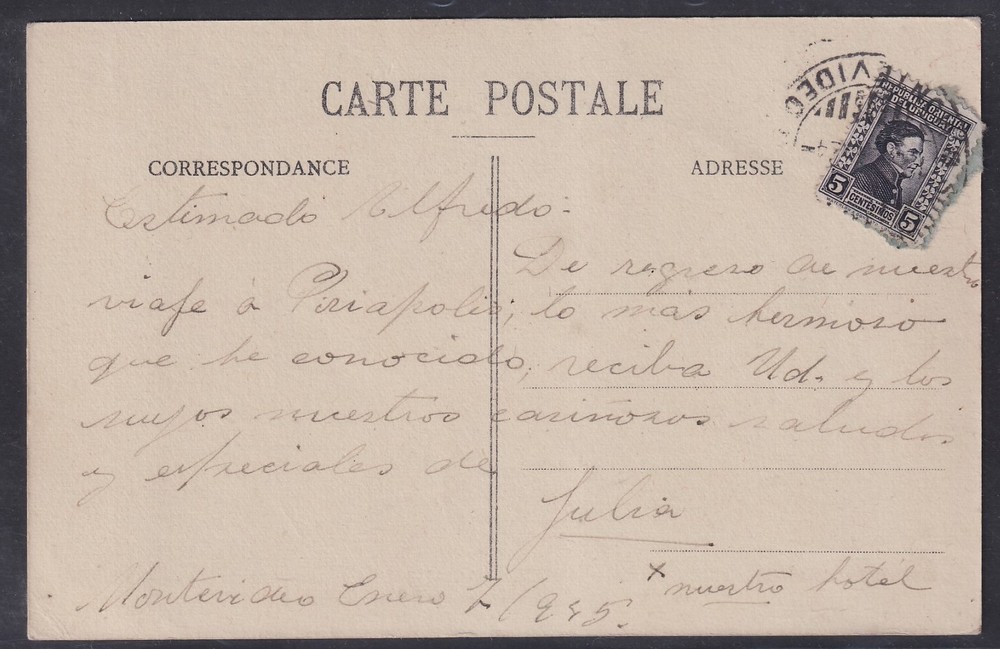 CARTE POSTALE
CORRESPONDANCE
ADRESSE
REPUBLICA ORIENTAL
DEL URUGUAY
5 CENTESIMOS 5
Estimado Alfredo:
De regreso de nuestro
viaje á Piriapolis, lo más hermoso
que he conocido, reciba Ud. y los
suyos nuestros cariñosos saludos
y especiales de
Julia
x nuestro hotel
Montevideo Enero 7/945.